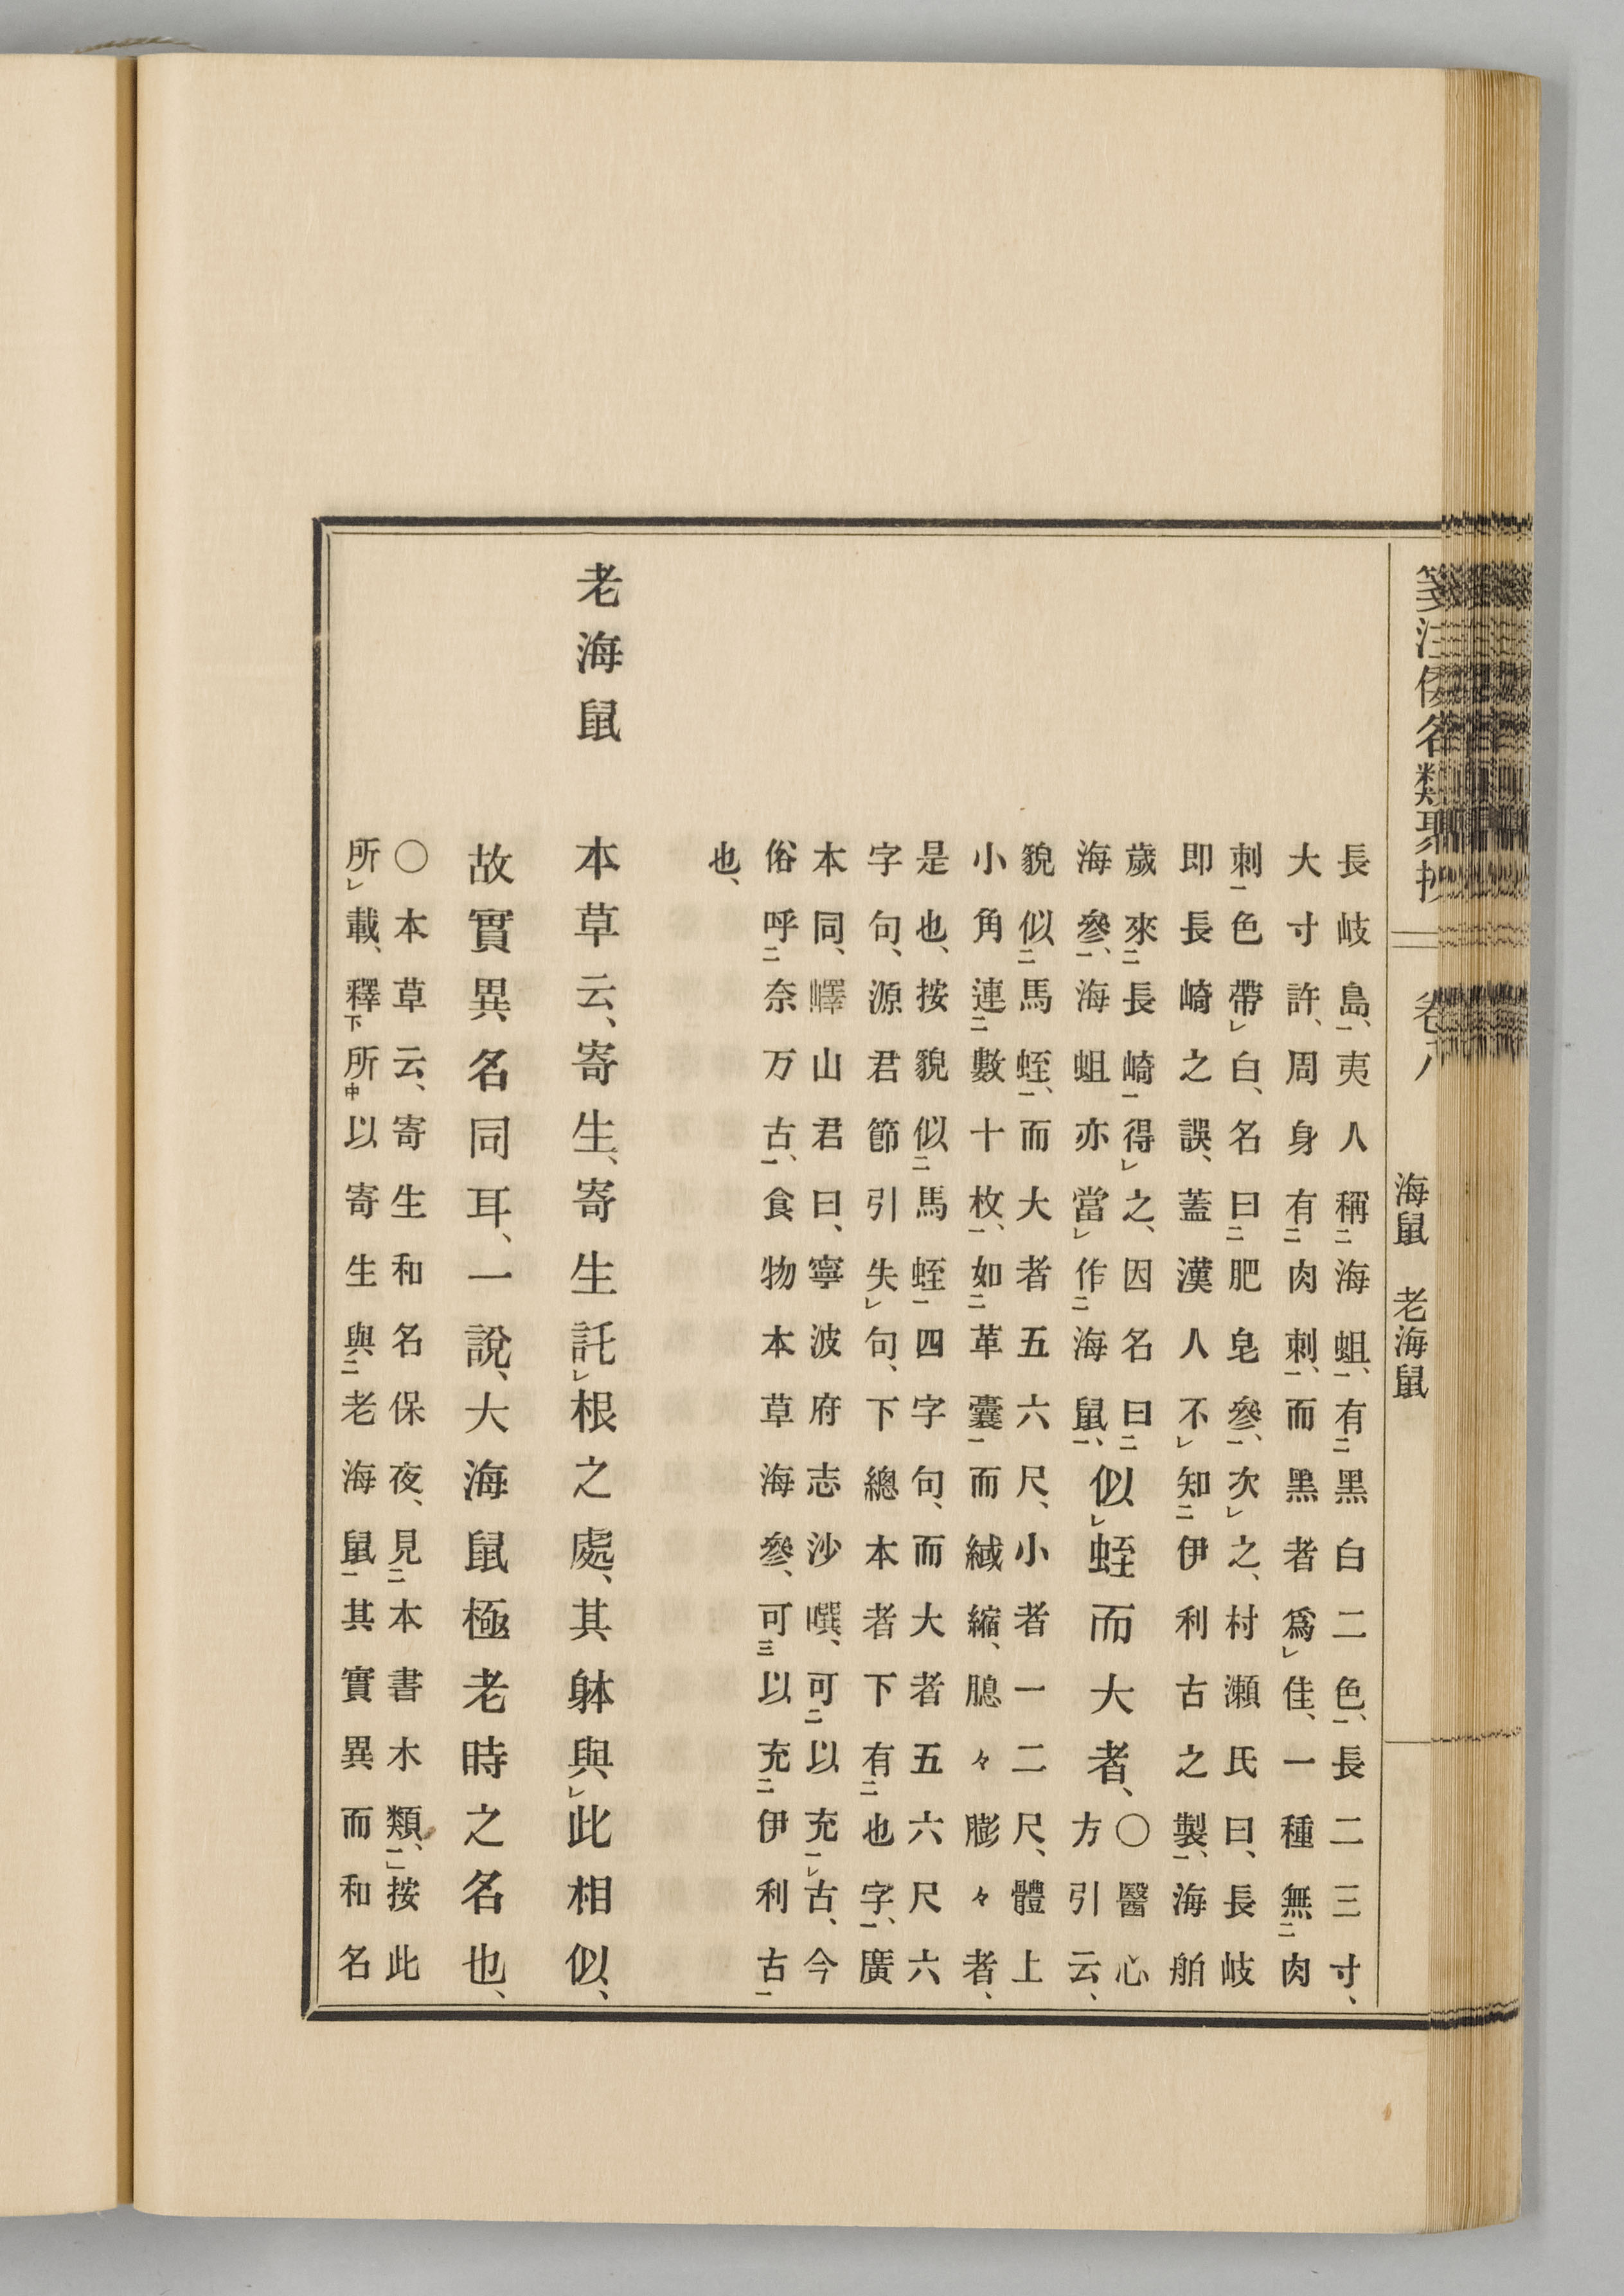 箋注倭名類聚抄 卷八 海鼠 老海鼠
長岐島、夷人稱海蛆、有黑白二色、長二三寸、
大寸許、周身有肉刺、而黑者爲佳、一種無肉
刺色帶白、名曰肥皂參、次之、村瀨氏曰、長岐
即長崎之誤、蓋漢人不知伊利古之製、海舶
歲來長崎得之、因名曰
海參、海蛆亦當作海鼠、
似蛭而大者、
○醫心
方引云、
貌似馬蛭、而大者五六尺、小者一二尺、體上
小角連數十枚、如革囊而緘縮、々膨々者、
是也、按貌似馬蛭四字句、而大者五六尺六
字句、源君節引失句、下總本者下有也字、廣
本同、嶧山君曰、寧波府志沙噀、可以充古、今
俗呼奈万古、食物本草海參、可以充伊利古
也、
老海鼠 本草云、寄生、寄生託根之處、其躰與此相似、
故實異名同耳、一說、大海鼠極老時之名也、
○本草云、寄生和名保夜、見本書木類、按此
所載、釋所以寄生與老海鼠其實異而和名